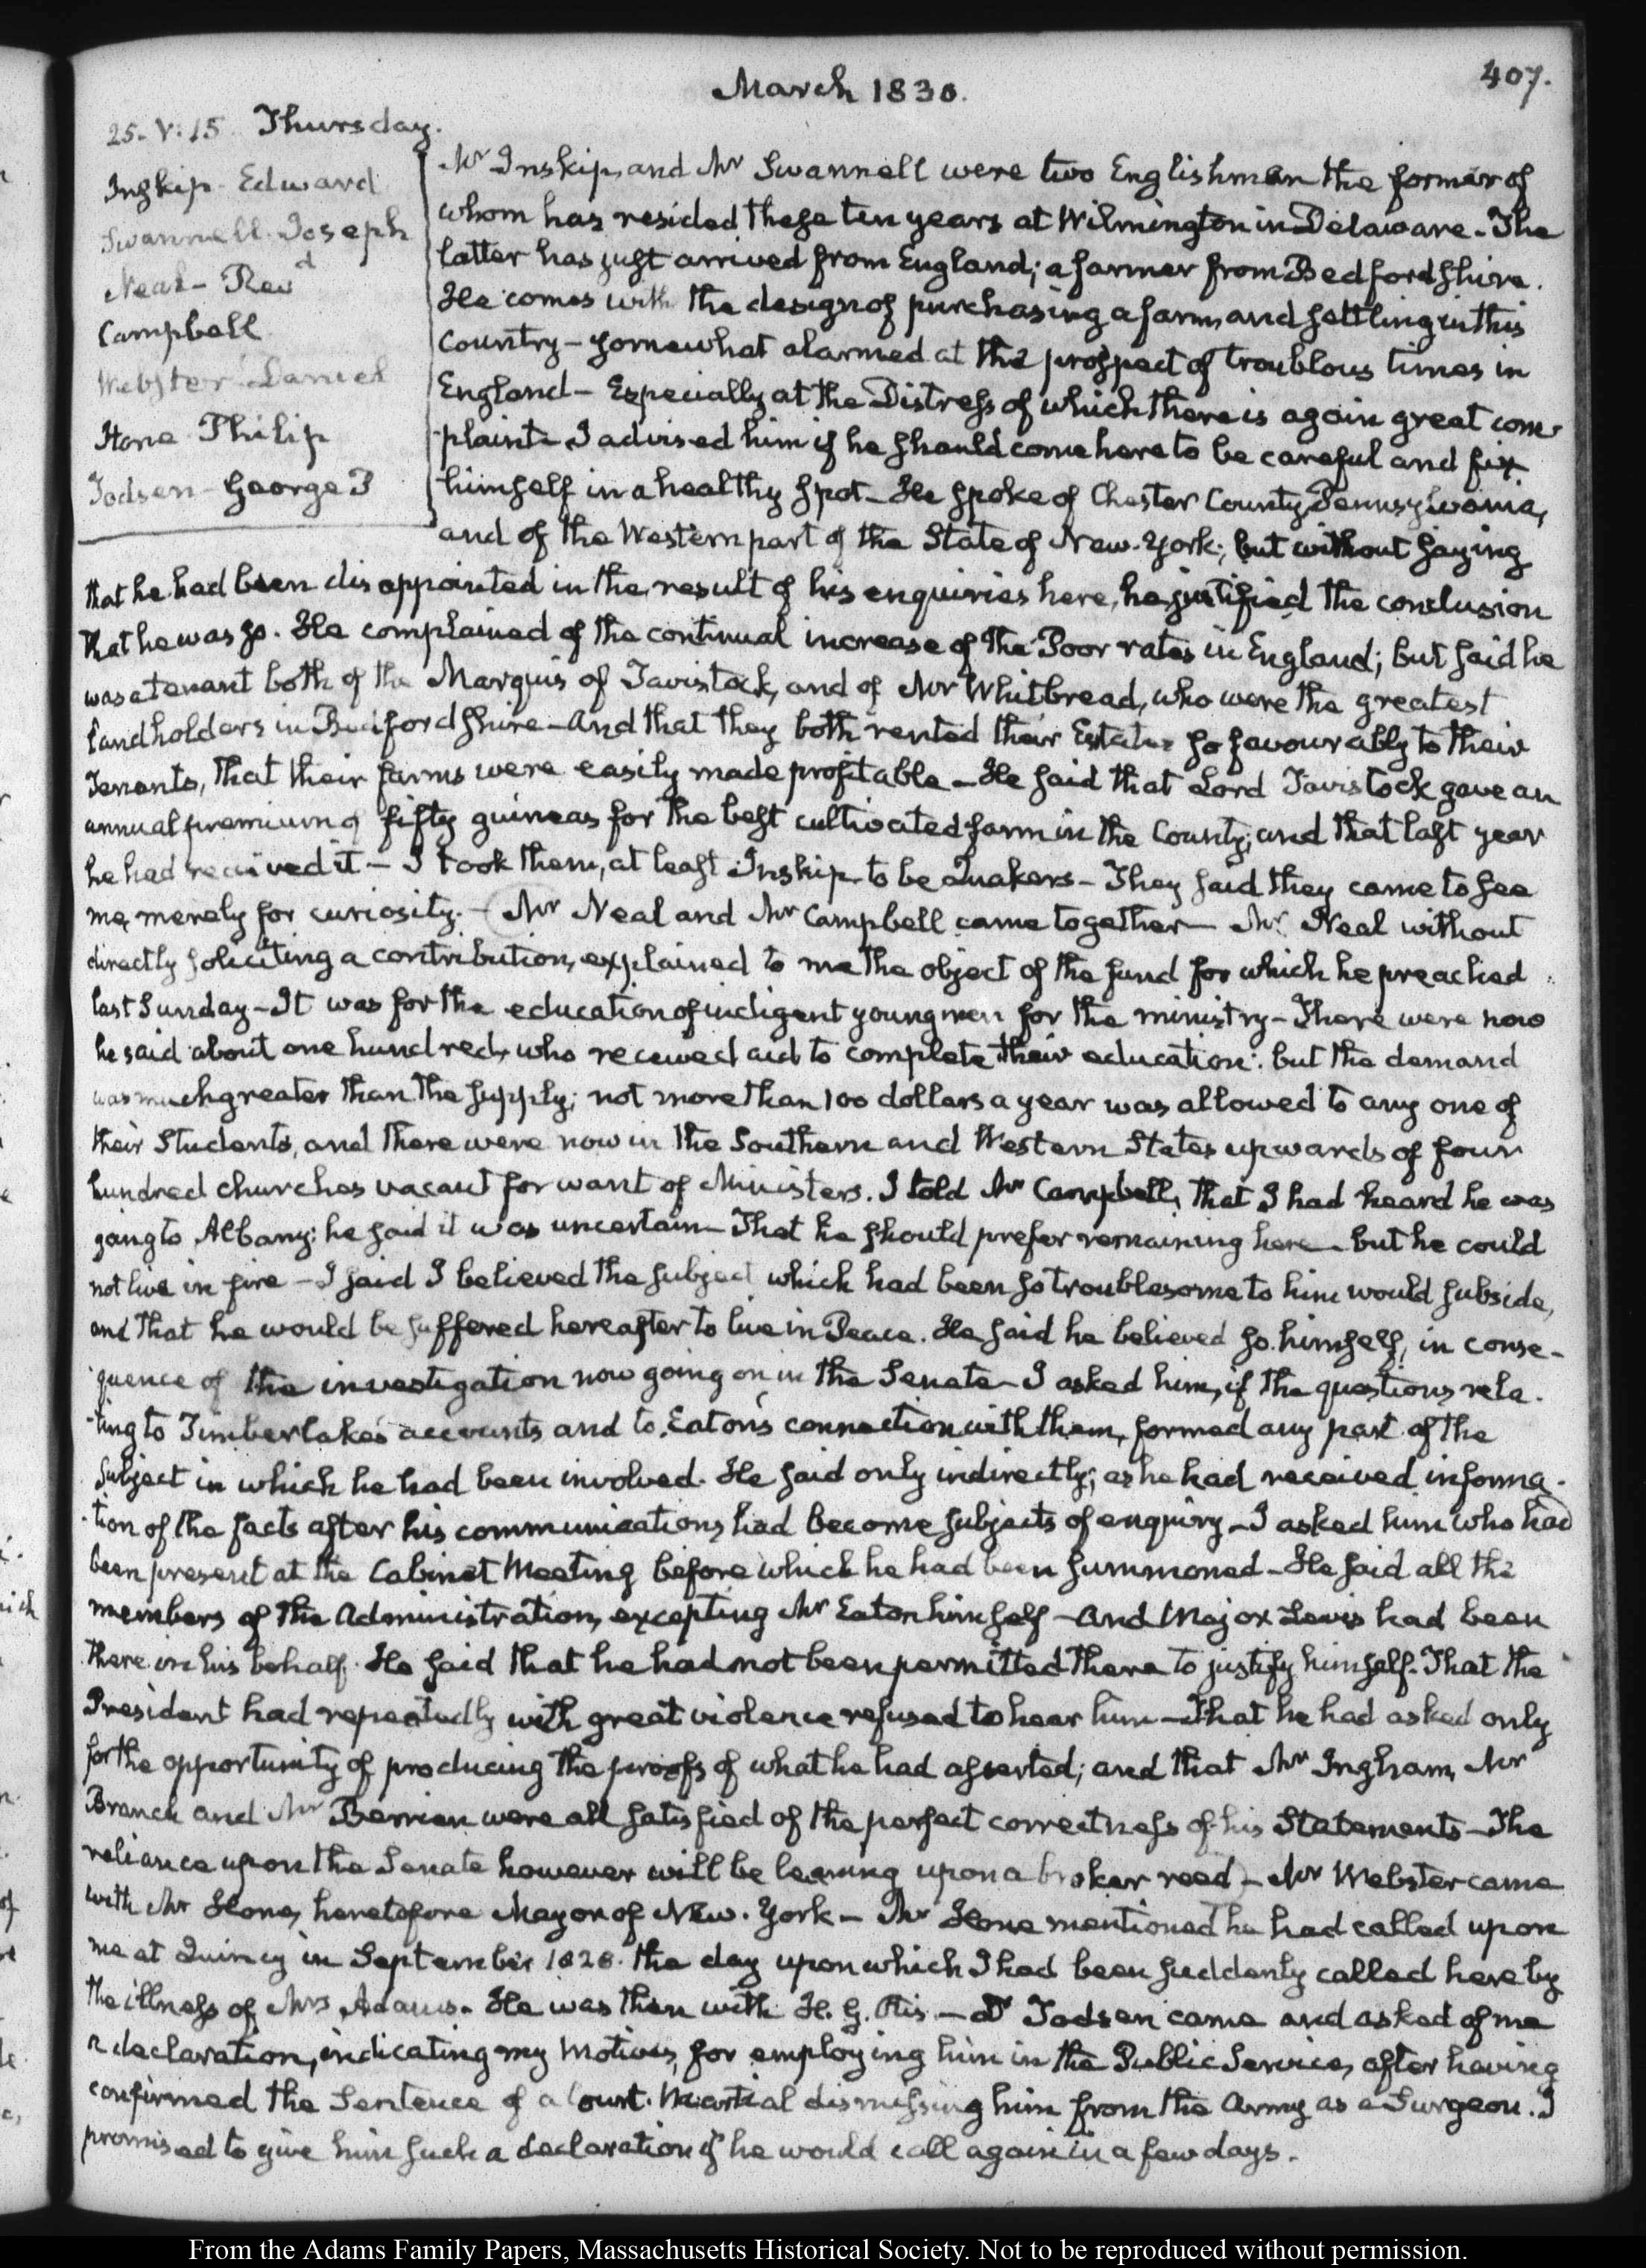 407.
March 1830.
25. V:15. Thursday.
Inskip. Edward
Swannell. Joseph
Neal - Revd
Campbell
Webster. Daniel
Hone. Philip
Todsen - George P
Mr Inskip, and Mr Swannell were two Englishmen the former of
whom has resided these ten years at Wilmington in Delaware. The
latter has just arrived from England; a farmer from Bedfordshire.
He comes with the design of purchasing a farm, and settling in this
Country - somewhat alarmed at the prospect of troublous times in
England - Especially at the Distress of which there is again great com-
-plaint. I advised him if he should come here to be careful and fix
himself in a healthy spot - He spoke of Chester County Pennsylvania,
and of the Western part of the State of New-York; but without saying
that he had been disappointed in the result of his enquiries here, he justified the conclusion
that he was so. He complained of the continual increase of the Poor rates in England; but said he
was a tenant both of the Marquis of Tavistock, and of Mr Whitbread, who were the greatest
landholders in Bedfordshire - And that they both rented their Estates so favourably to their
Tenants, that their farms were easily made profitable - He said that Lord Tavistock gave an
annual premium of fifty guineas for the best cultivated farm in the County; and that last year
he had received it - I took them, at least Inskip to be Quakers - They said they came to see
me, merely for curiosity. - Mr Neal and Mr Campbell came together - Mr Neal without
directly soliciting a contribution, explained to me the object of the fund for which he preached
last Sunday - It was for the education of indigent young men for the ministry - There were now
he said about one hundred, who received aid to complete their education: but the demand
was much greater than the supply; not more than 100 dollars a year was allowed to any one of
their Students, and there were now in the Southern and Western States upwards of four
hundred churches vacant for want of Ministers. I told Mr Campbell, that I had heard he was
going to Albany: he said it was uncertain - That he should prefer remaining here - but he could
not live in fire - I said I believed the subject which had been so troublesome to him would subside,
and that he would be suffered hereafter to live in Peace. He said he believed so himself, in conse-
quence of the investigation now going on in the Senate - I asked him, if the questions rela-
-ting to Timberlake's accounts and to Eaton's connection with them, formed any part of the
subject in which he had been involved. He said only indirectly; as he had received informa-
-tion of the facts after his communications had become subjects of enquiry - I asked him who had
been present at the Cabinet Meeting before which he had been summoned - He said all the
members of the Administration, excepting Mr Eaton himself - And Major Lewis had been
there in his behalf. He said that he had not been permitted there to justify himself. That the
President had repeatedly with great violence refused to hear him - That he had asked only
for the opportunity of producing the proofs of what he had asserted; and that Mr Ingham, Mr
Branch and Mr Berrien were all satisfied of the perfect correctness of his Statements - The
reliance upon the Senate however will be leaning upon a broken reed - Mr Webster came
with Mr Hone, heretofore Mayor of New-York - Mr Hone mentioned he had called upon
me at Quincy in September 1828. the day upon which I had been suddenly called here by
the illness of Mrs Adams. He was then with H. G. Otis. - Dr Todsen came and asked of me
a declaration, indicating my Motives, for employing him in the Public Service, after having
confirmed the Sentence of a Court. Martial dismissing him from the Army as a Surgeon. I
promised to give him such a declaration if he would call again in a few days.
From the Adams Family Papers, Massachusetts Historical Society. Not to be reproduced without permission.